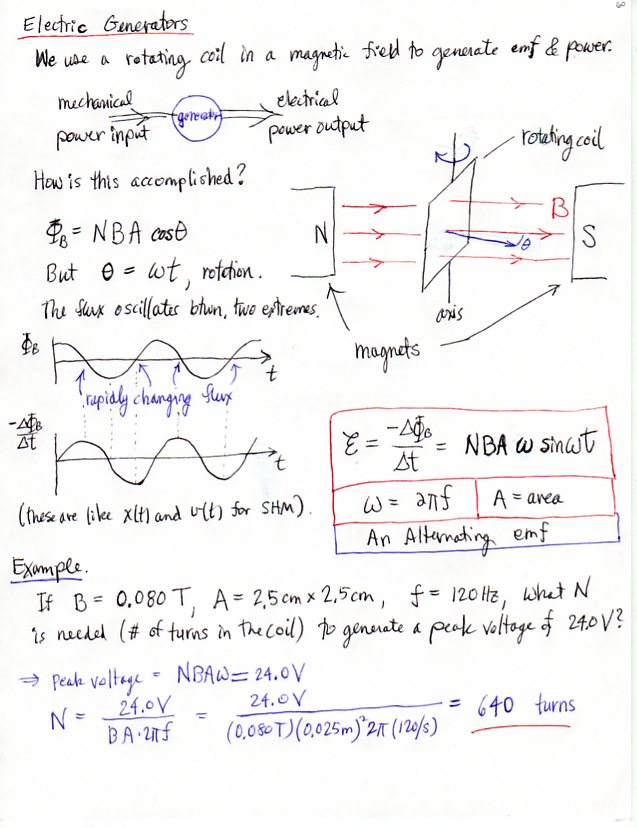 60
Electric Generators
We use a rotating coil in a magnetic field to generate emf & power.
mechanical power input
generator
electrical power output
rotating coil
How is this accomplished?
N
B
θ
S
Φ_B = NBA cosθ
But θ = ωt, rotation.
axis
The flux oscillates btwn. two extremes.
magnets
Φ_B
t
rapidly changing flux
-ΔΦ_B/Δt
t
ℰ = -ΔΦ_B/Δt = NBA ω sinωt
ω = 2πf
A = area
An Alternating emf
(these are like x(t) and v(t) for SHM).
Example.
If B = 0.080 T, A = 2.5cm x 2.5cm, f = 120 Hz, what N
is needed (# of turns in the coil) to generate a peak voltage of 24.0V?
⇒ Peak voltage = NBAω = 24.0V
N = 24.0V/BA·2πf = 24.0V/(0.080T)(0.025m)²2π(120/s) = 640 turns